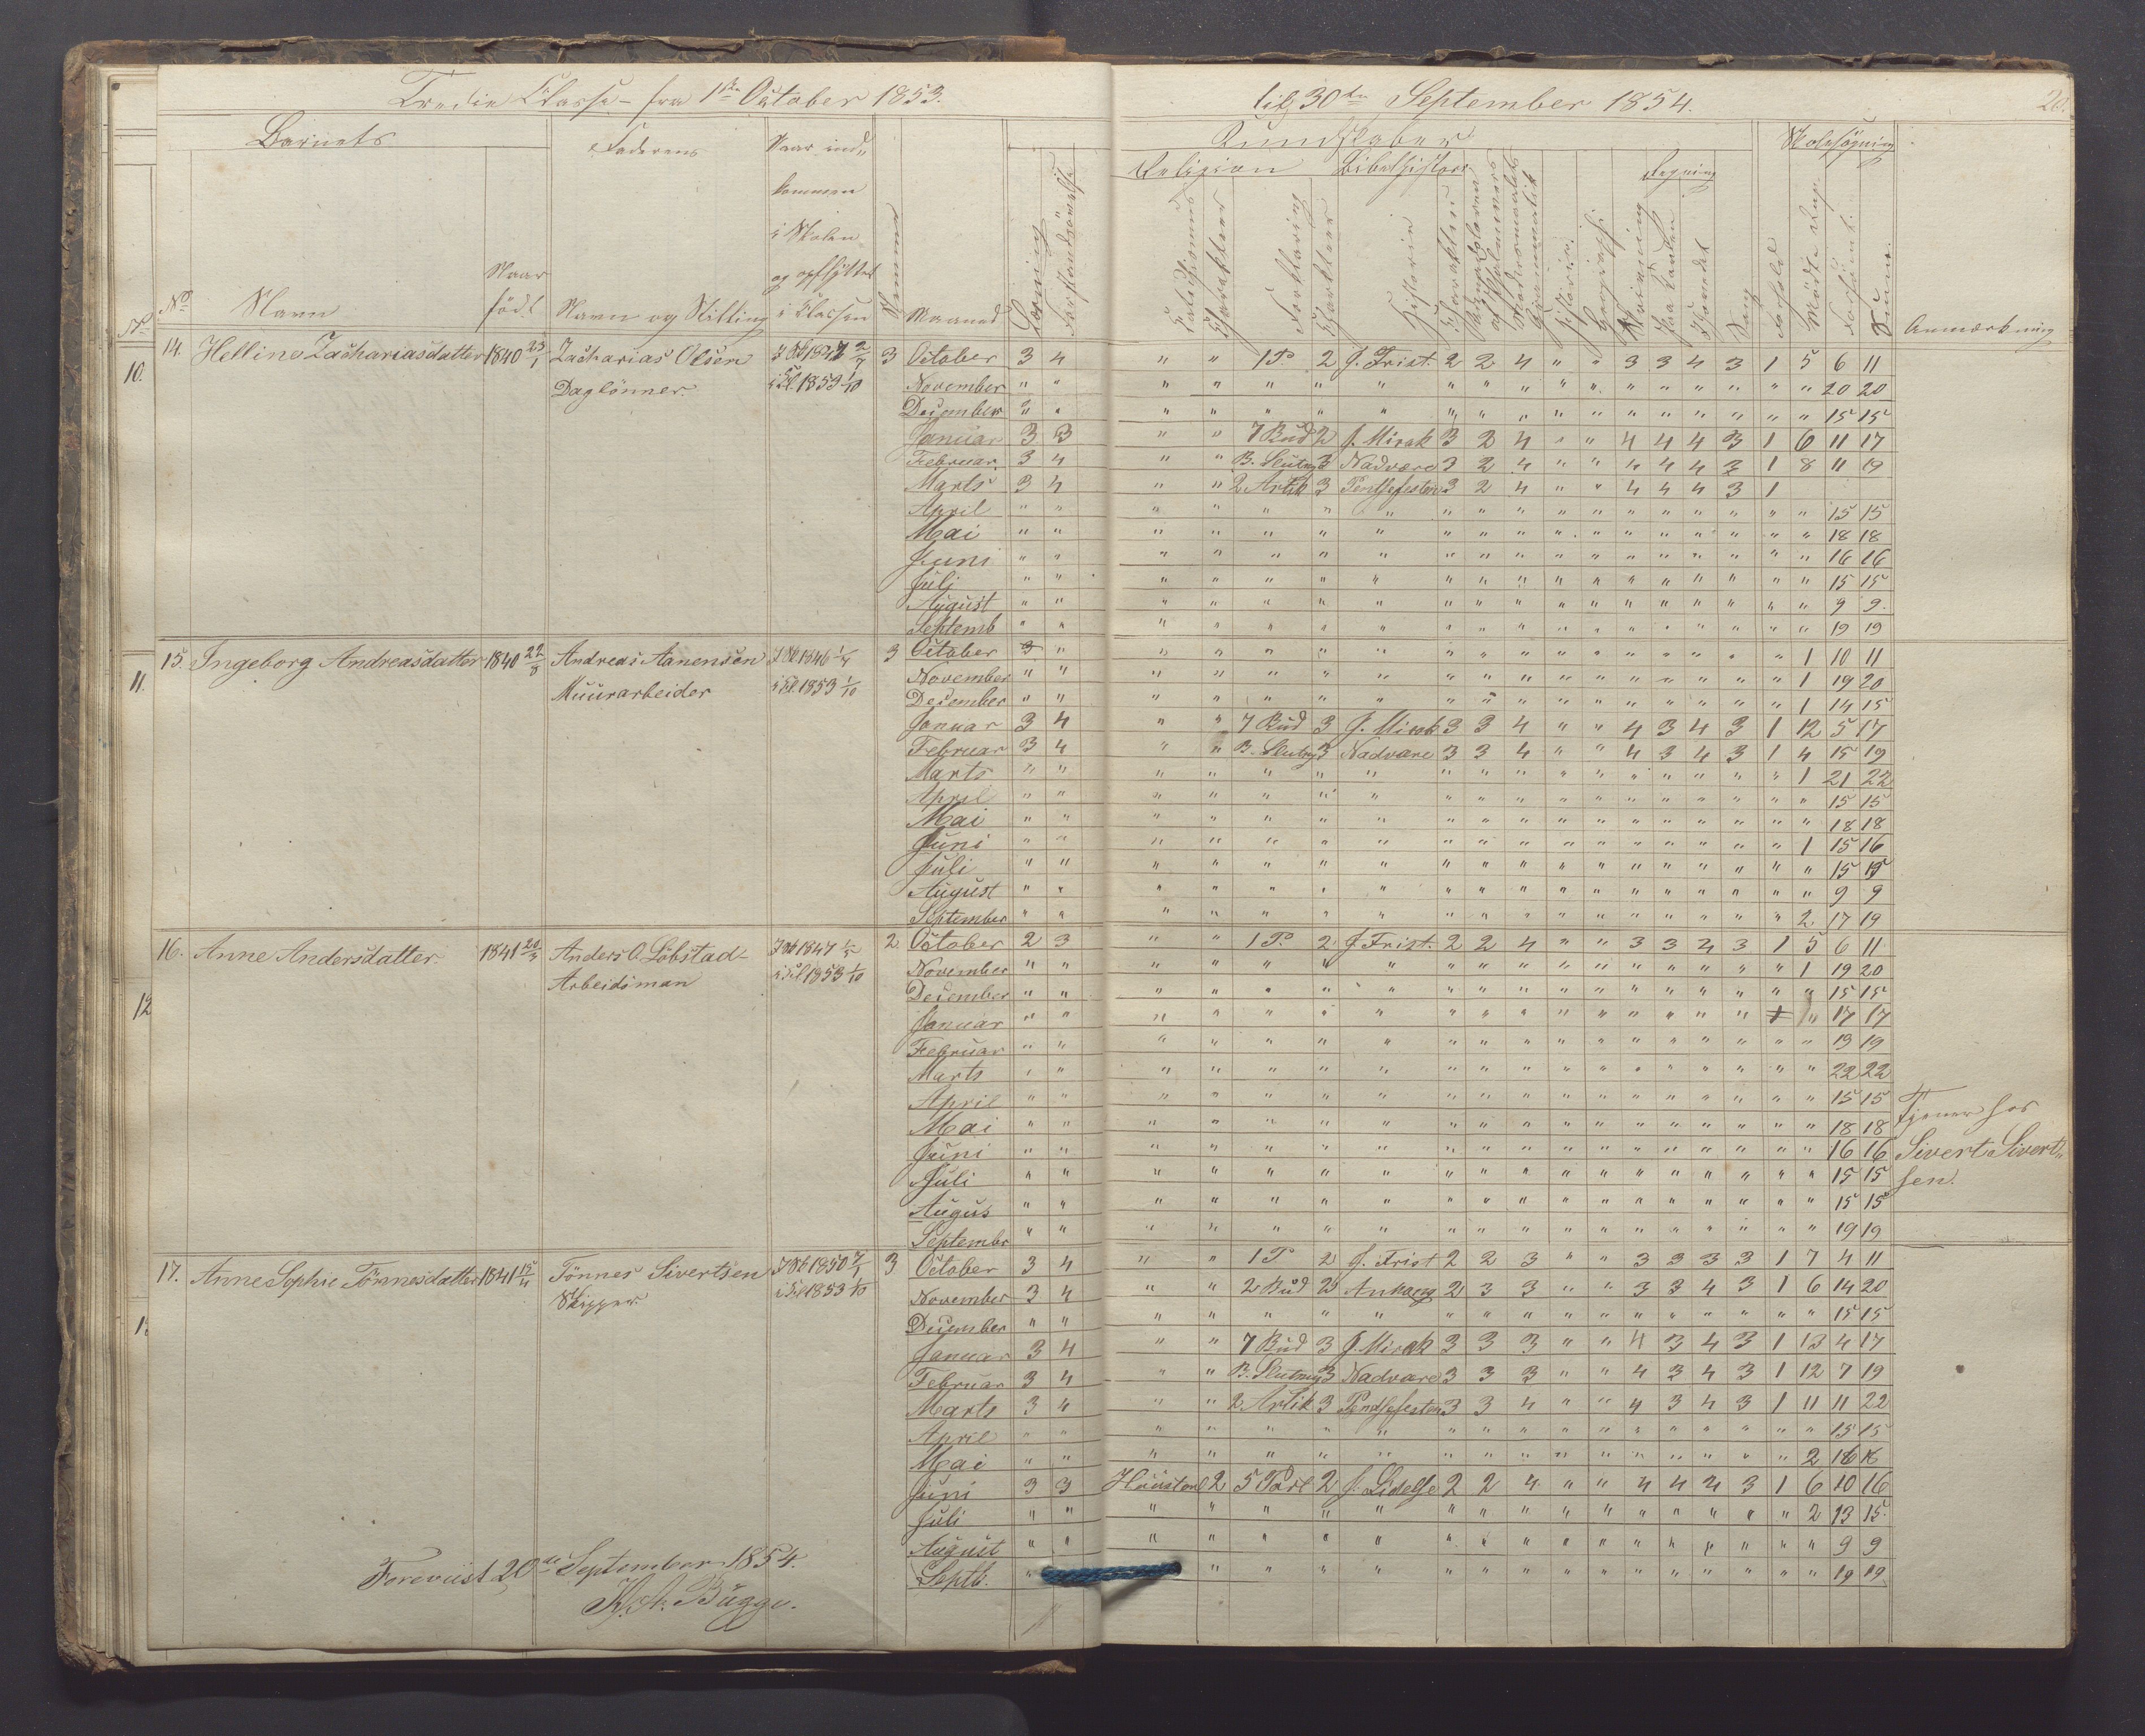 Tredie Classe – fra 1ste October 1853. til 30te September 1854.
Barnets Faderens Naar ind-
kommen
i Skolen
og opflyttet
i Classen
No Navn Naar født Navn og Stilling Nummer Maaned Læsning Forstandsøvelse
Kundskaber Skolesøgning
Religion Bibelhistorie Regning
Katechismus Charakter Forklaring Charakter Historie Charakter Grammatik Historie Geografi Skrivning Paa Tavlen I hovedet Sang Forhold Mødte Dage Forsømt Summa Anmærkning
14. Helline Zachariasdatter 1840 23/1 Zacharias Olsen 3 October 3 4 " " 1 P. 2 J. Frist. 2 2 4 " " 3 3 4 3 1 5 6 11
Daglönner. i Cl. 1853 1/10 November " " " " " " " " " " " " " " " " " " 20 20
December " " " " " " " " " " " " " " " " " " 15 15
Januar 3 3 " " 7 Bud 2 J. Mirak 3 2 4 " " 4 4 4 3 1 6 11 17
Februar 3 4 " " B. Slutng 3 Nadvære 3 2 4 " " 4 4 4 3 1 8 11 19
Marts 3 4 " " 2 Artik 3 Pintsefesten 3 2 4 " " 4 4 4 3 1
April " " " " " " " " " " " " " " " " " " 15 15
Mai " " " " " " " " " " " " " " " " " " 18 18
Juni " " " " " " " " " " " " " " " " " " 16 16
Juli " " " " " " " " " " " " " " " " " " 15 15
August " " " " " " " " " " " " " " " " " " 9 9
Septemb " " " " " " " " " " " " " " " " " " 19 19
15. Ingeborg Andreasdatter 1840 22/8 Andreas Aanensen 3 October " " " " " " " " " " " " " " " " 1 10 11
Muurarbeider i Cl. 1853 1/10 November " " " " " " " " " " " " " " " " " 1 19 20
December " " " " " " " " " " " " " " " " " 1 14 15
Januar 3 4 " " 7 Bud 3 J. Mirak 3 3 4 " " 4 3 4 3 1 12 5 17
Februar 3 4 " " B. Slutng 3 Nadvære 3 3 4 " " 4 3 4 3 1 4 15 19
Marts " " " " " " " " " " " " " " " " " 1 21 22
April " " " " " " " " " " " " " " " " " " 15 15
Mai " " " " " " " " " " " " " " " " " " 18 18
Juni " " " " " " " " " " " " " " " " " 1 15 16
Juli " " " " " " " " " " " " " " " " " " 15 15
August " " " " " " " " " " " " " " " " " " 9 9
September " " " " " " " " " " " " " " " " " 2 17 19
16. Anne Andersdatter. 1841 Anders O. Löbstad- 2 October 2 3 " " 1 P. 2 J Frist. 2 2 4 " " 3 3 4 3 1 5 6 11
Arbeidsman i Cl 1853 1/10 November " " " " " " " " " " " " " " " " " 1 19 20
December " " " " " " " " " " " " " " " " " " 15 15
Januar " " " " " " " " " " " " " " " " " 17 17
Februar " " " " " " " " " " " " " " " " " " 19 19
Marts " " " " " " " " " " " " " " " " " " 22 22
April " " " " " " " " " " " " " " " " " " 15 15 Tjener hos
Mai " " " " " " " " " " " " " " " " " " 18 18
Juni " " " " " " " " " " " " " " " " " " 16 16 Sivert Sivert-
Juli " " " " " " " " " " " " " " " " " " 15 15 sen.
Augus " " " " " " " " " " " " " " " " " " 15 15
Septembr " " " " " " " " " " " " " " " " " " 19 19
17. Anne Sophie Tönnesdatter 1841 15/4 Tönnes Sivertsen 3 October 3 4 " " 1 P 2 J. Frist 2 2 3 " " 3 3 3 3 1 7 4 11
Skipper. i Cl 1853 1/10 November 3 4 " " 2 Bud 2 2 3 3 " " 3 3 4 3 1 6 14 20
December " " " " " " " " " " " " " " " " " " 15 15
Januar 3 4 " " 7 Bud 3 J. Mirak 3 3 3 " " 4 3 4 3 1 13 4 17
Februar 3 4 " " B. Slutng 3 Nadvære 3 3 3 " " 4 3 4 3 1 12 7 19
Marts 3 4 " " 2 Artik 3 Pintsefesten 3 3 4 " " 4 3 4 3 1 11 11 22
April " " " " " " " " " " " " " " " " " " 15 15
Mai " " " " " " " " " " " " " " " " " 2 16
Juni 3 3 Huustavl 2 5 Part 2 J. Lidelse 2 2 4 " " 4 4 4 3 1 6 10 16
Juli " " " " " " " " " " " " " " " " " 2 13 15
August " " " " " " " " " " " " " " " " " " 9 9
Septb. " " " " " " " " " " " " " " " " " 19 19
Foreviist 20de September 1854.
Bugge.
No
10.
11.
12